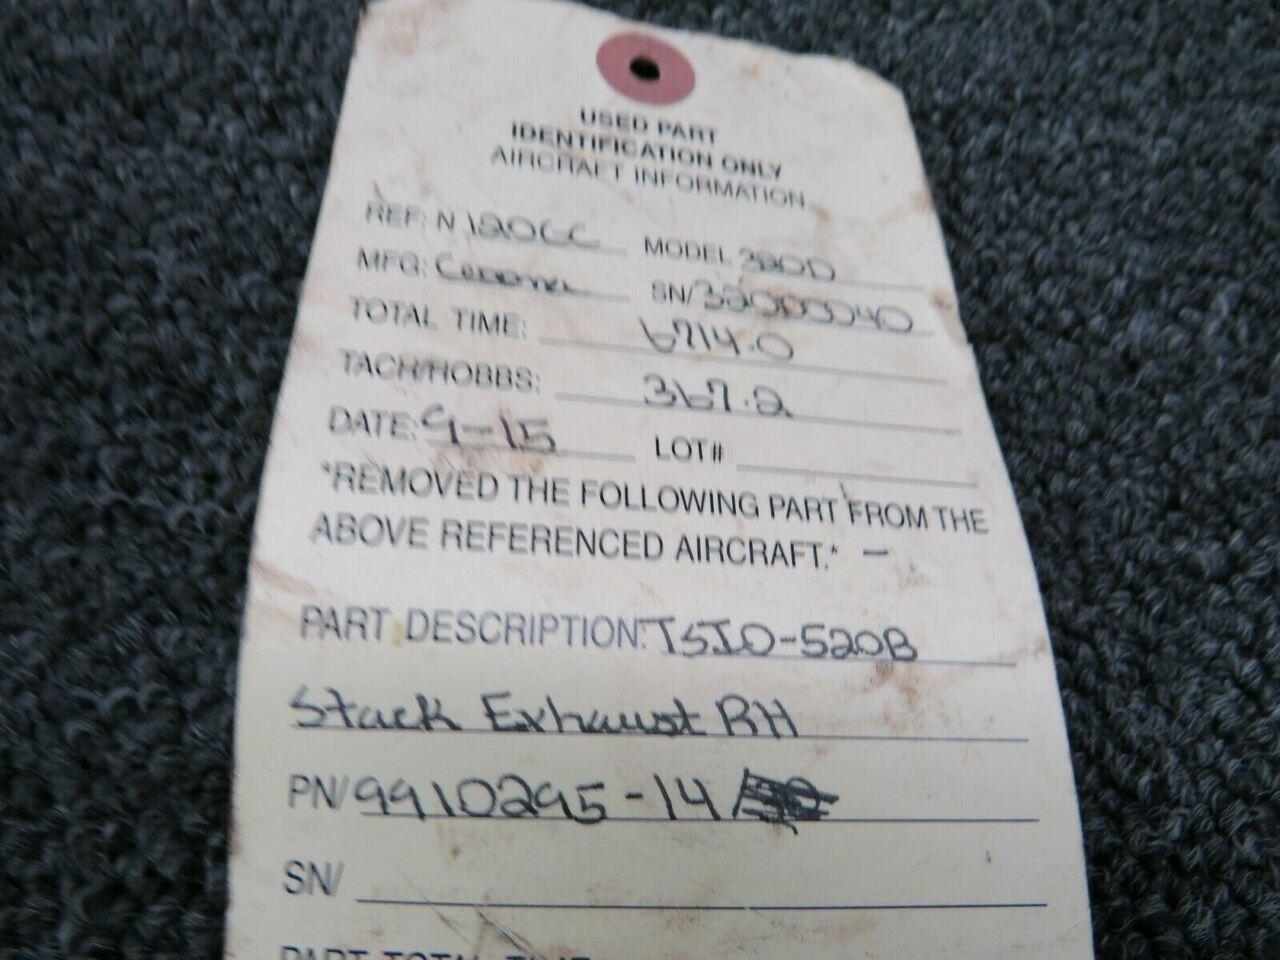 USED PART
IDENTIFICATION ONLY
AIRCRAFT INFORMATION
REF: N 1206C MODEL 320D
MFG: Cessna SN/320D0040
TOTAL TIME: 6714.0
TACH/HOBBS: 367.2
DATE: 9-15 LOT#
*REMOVED THE FOLLOWING PART FROM THE
ABOVE REFERENCED AIRCRAFT.* -
PART DESCRIPTION: TSIO-520B
Stack Exhaust RH
PN/9910295-14
SN/
PART TOTAL TIME